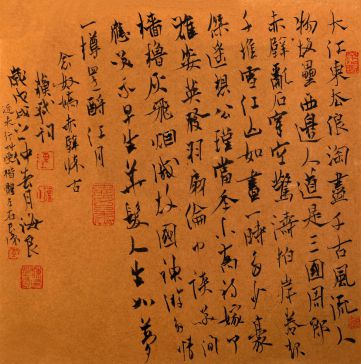 大江東去浪淘盡千古風流人
物故壘西邊人道是三國周郎
赤壁亂石穿空驚濤拍岸卷起
千堆雪江山如畫一時多少豪
傑遙想公瑾當年小喬初嫁了
雄姿英發羽扇綸巾談笑間
檣櫓灰飛煙滅故國神游多情
應笑我早生華髮人生如夢
一樽還酹江月
念奴嬌赤壁懷古
歲戊戌仲春月海良